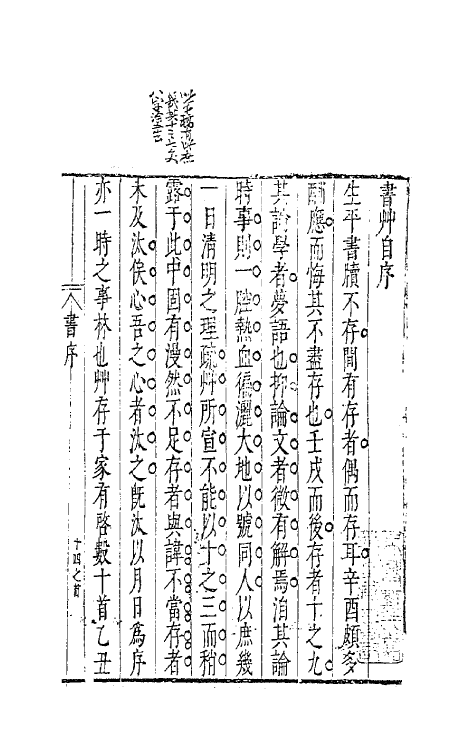 書艸自序
生平書牘不存間有存者偶而存耳辛酉頗多
酬應而悔其不盡存也壬戌而後存者十之九
其論學者夢語也抑論文者微有解焉洎其論
時事則一腔熱血徧灑大地以號同人以庶幾
一日清明之理疏艸所宣不能以十之三而稍
露于此中固有漫然不足存者與諱不當存者
未及汰俟心吾之心者汰之旣汰以月日爲序
亦一時之事林也艸存于家有啓數十首乙丑
書序
十四之前